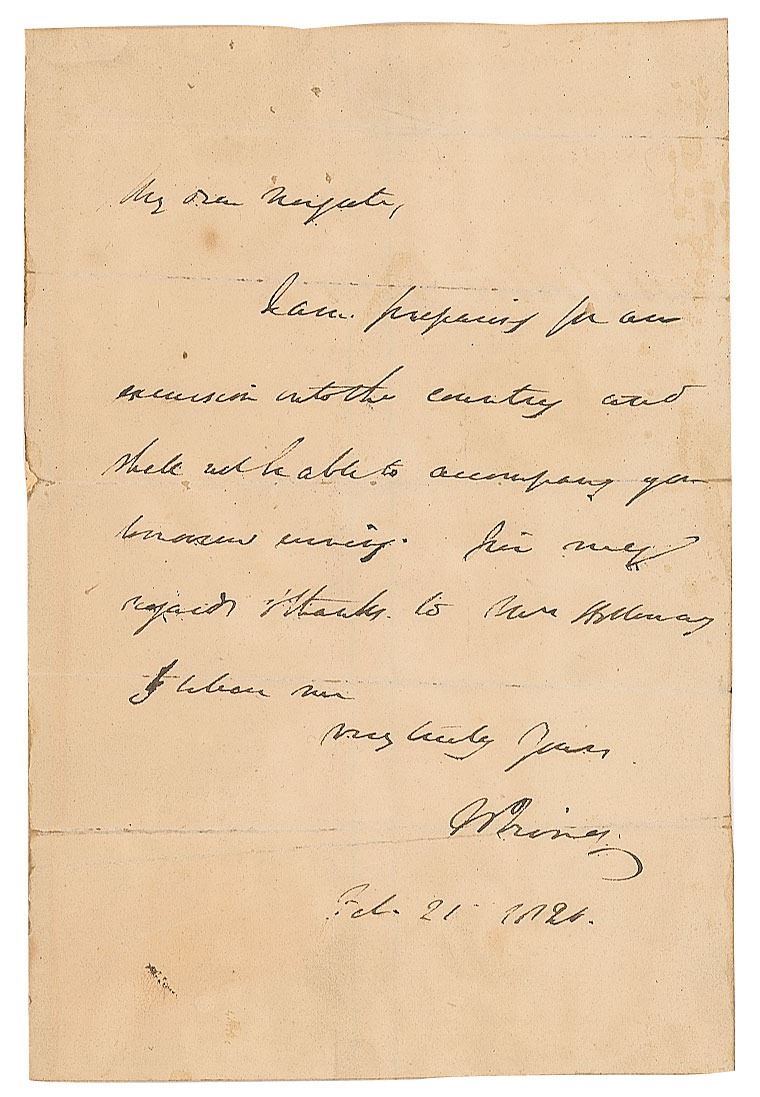 My dear Neizate,
I am preparing for an
excursion into the country and
shall not be able to accompany you
tomorrow evening. Give my
regards & thanks to Mrs Holloway
& believe me
very truly yours
W Irving.
Feb. 21 1826.